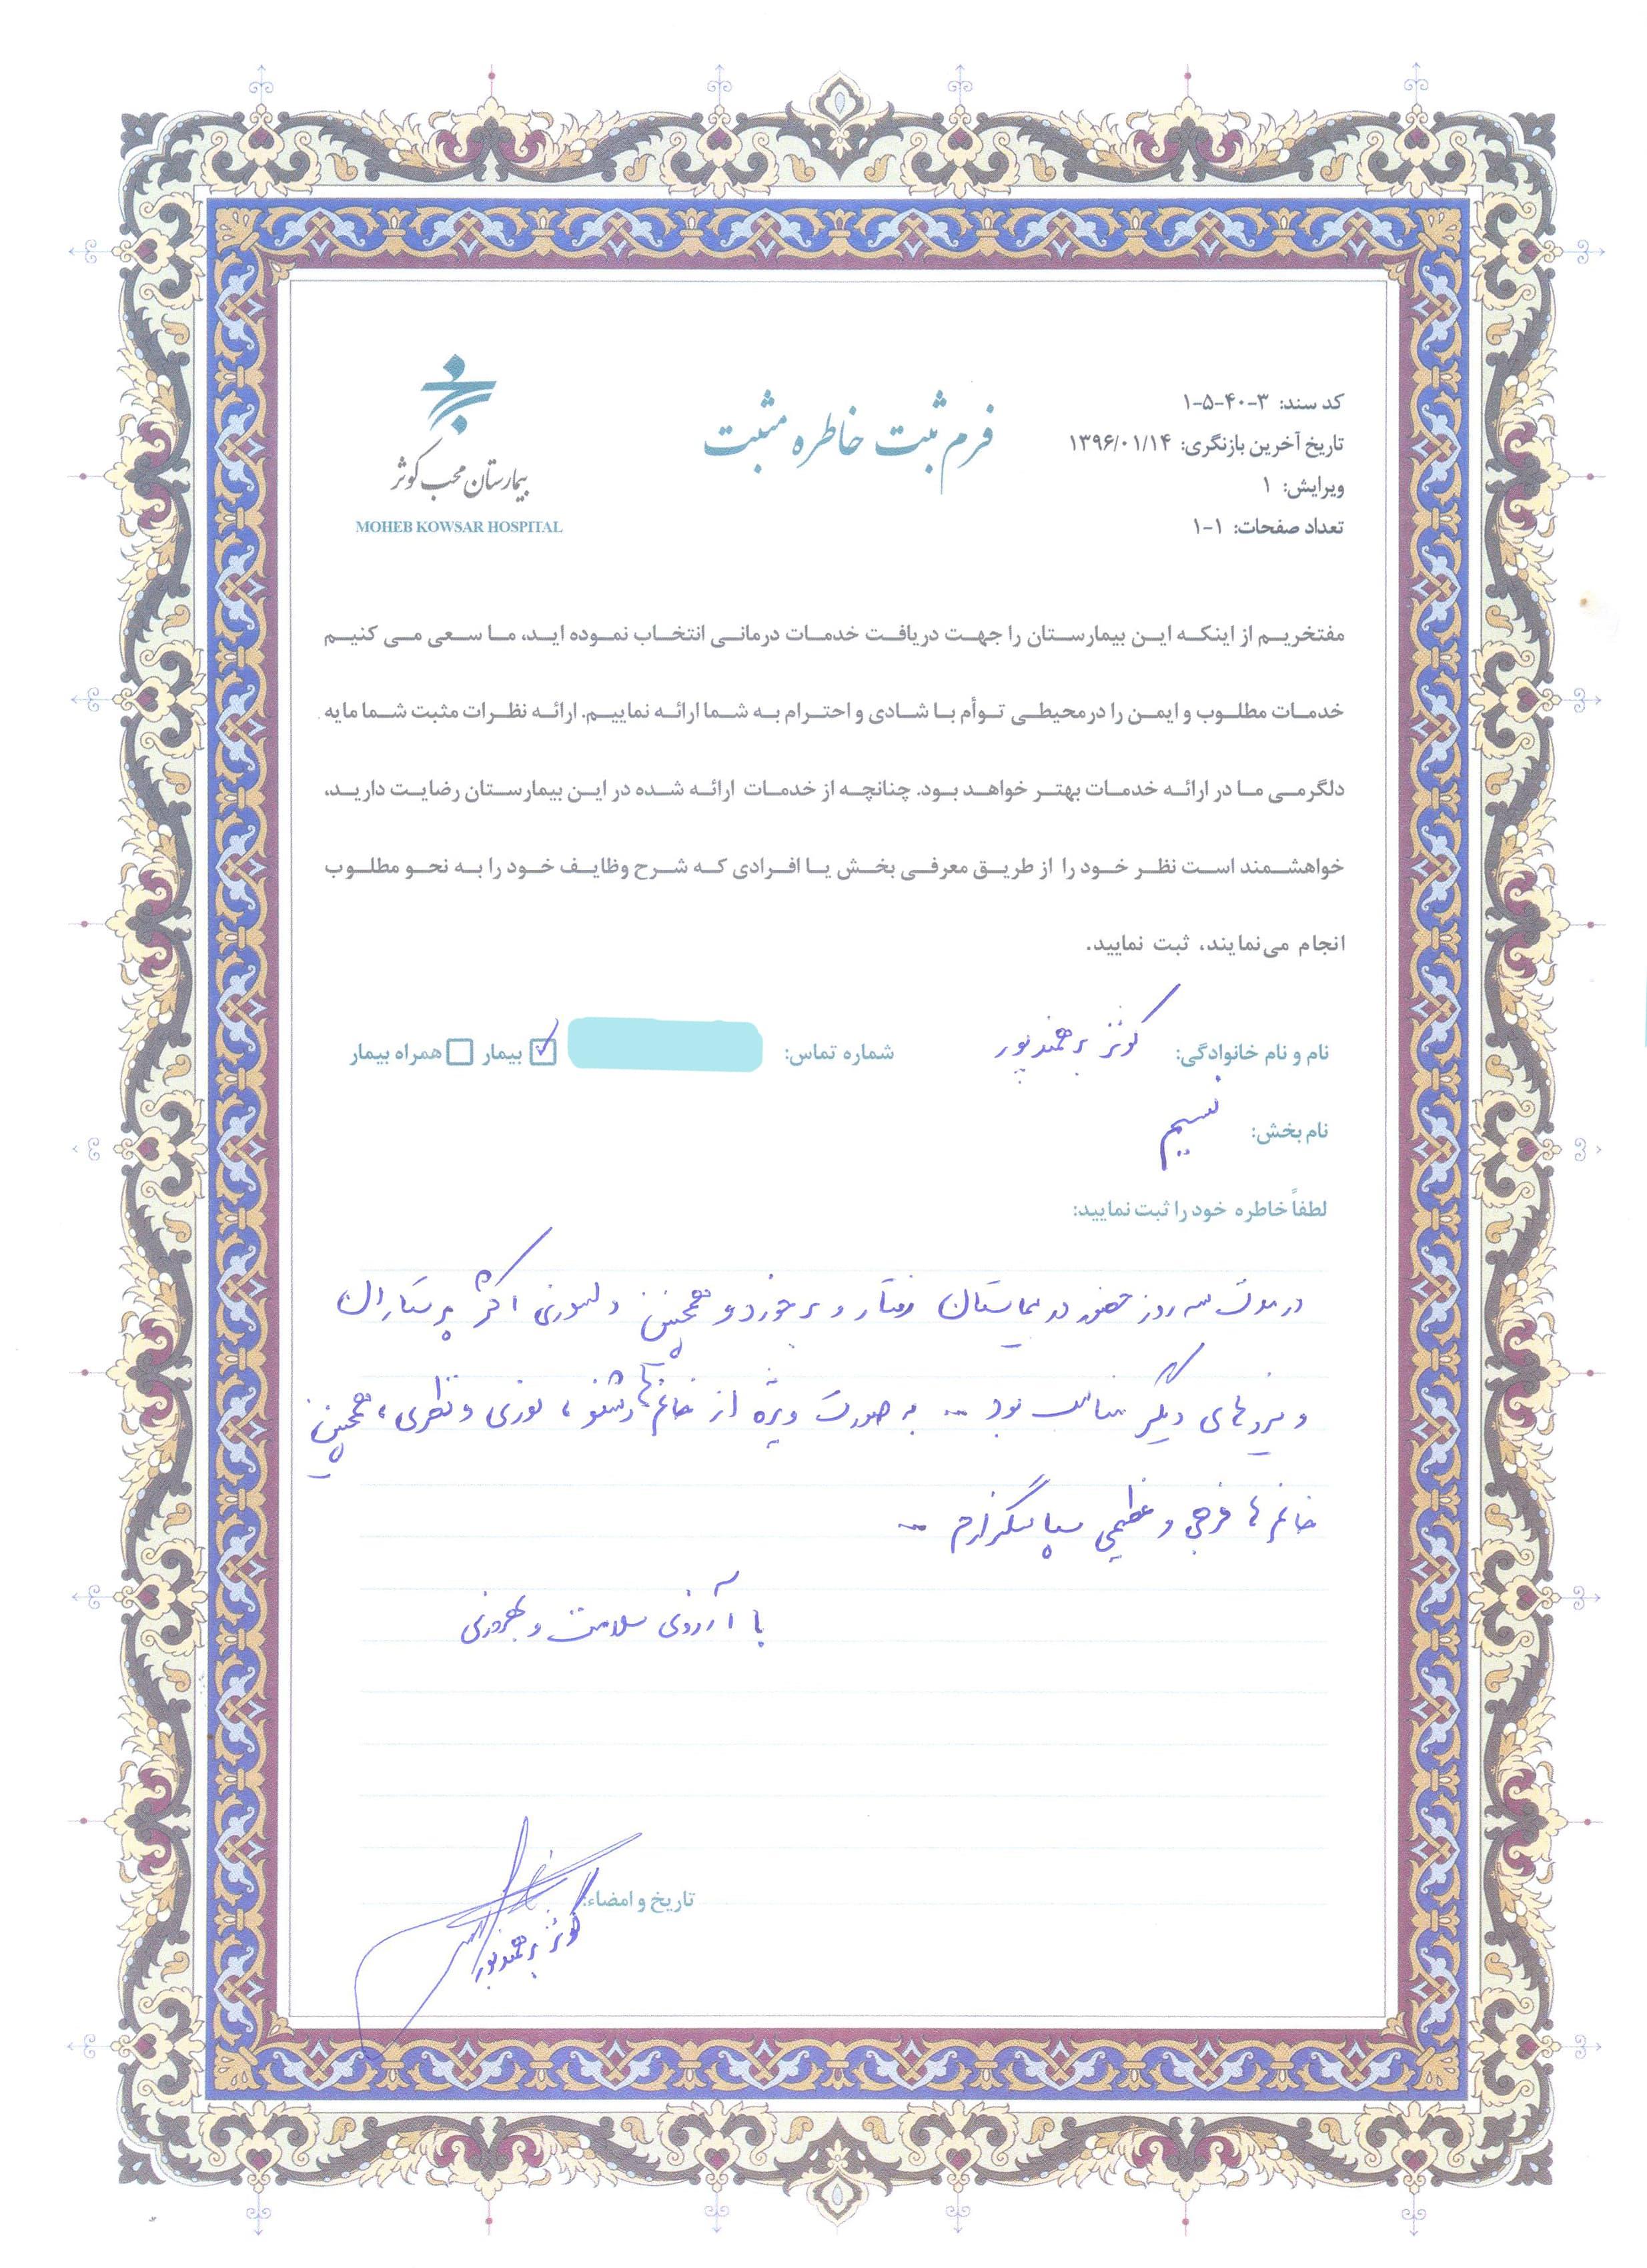 کد سند: ۳-۴۰-۵-۱
تاریخ آخرین بازنگری: ۱۳۹۶/۰۱/۱۴
ویرایش: ۱
تعداد صفحات: ۱-۱
فرم ثبت خاطره مثبت
بیمارستان محب کوثر
MOHEB KOWSAR HOSPITAL
مفتخریم از اینکه این بیمارستان را جهت دریافت خدمات درمانی انتخاب نموده اید، ما سعی می کنیم
خدمات مطلوب و ایمن را درمحیطی توأم با شادی و احترام به شما ارائه نماییم. ارائه نظرات مثبت شما مایه
دلگرمی ما در ارائه خدمات بهتر خواهد بود. چنانچه از خدمات ارائه شده در این بیمارستان رضایت دارید،
خواهشمند است نظر خود را از طریق معرفی بخش یا افرادی که شرح وظایف خود را به نحو مطلوب
انجام می‌نمایند، ثبت نمایید.
نام و نام خانوادگی: کوثر برهمندپور شماره تماس: بیمار همراه بیمار
نام بخش: نسیم
لطفاً خاطره خود را ثبت نمایید:
در مدت سه روز حضور در بیمارستان رفتار و برخورد و همچنین دلسوزی اکثر پرستاران
و نیروهای دیگر مناسب بود ... به صورت ویژه از خانم‌ها نوری و نظری، همچنین
خانم ها فرجی و عظیمی سپاسگزارم ...
با آرزوی سلامت و بهروزی
تاریخ و امضاء:
کوثر برهمندپور